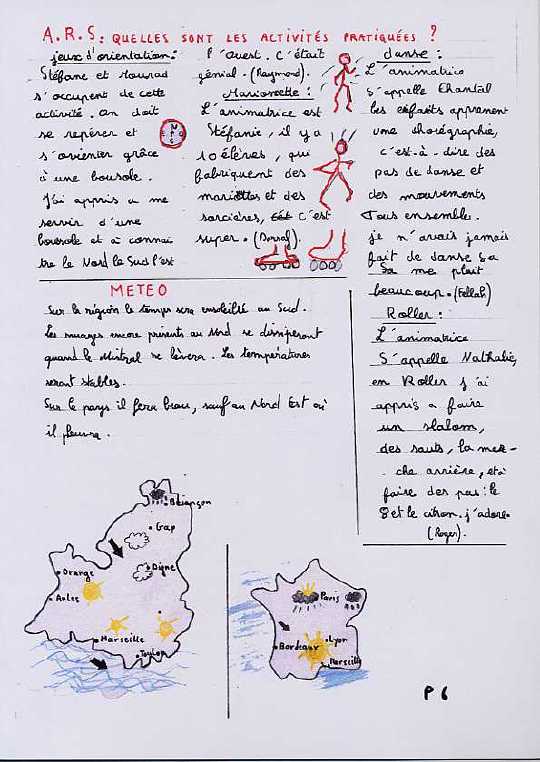 A.R.S: QUELLES SONT LES ACTIVITÉS PRATIQUÉES ?
jeux d'orientation:
Stéfane et Mourad
s'occupent de cette
activité. on doit
se repérer et
s'orienter grâce
à une boussole.
J'ai appris a me
servir d'une
boussole et à connai
tre le Nord le Sud l'est
l'ouest. C'était
génial. (Raymond).
Marionette:
L'animatrice est
Stéfanie, il y a
10 élèves, qui
fabriquent des
mariottes et des
sorcières, C'est
super.
danse:
L'animatrice
S'appelle Chantal
les enfants apprenent
une chorégraphie,
c'est-à-dire des
pas de danse et
des mouvements
Tous ensemble.
je n'avais jamais
fait de danse Sa
Sa me plait
beaucoup. (Fellah)
Roller:
L'animatrice
S'appelle Nathalie,
en Roller j'ai
appris a faire
un slalom,
des sauts, la mar-
che arrière, et à
faire des pas: le
8 et le citron. j'adore
(Roger).
METEO
Sur la région le temps sera ensoleillé au Sud.
Les nuages encore présents au Nord se dissiperont
quand le Mistral se lèvera. Les températures
seront stables.
Sur le pays il fera beau, sauf au Nord Est où
il pleuvra.
Besançon
Gap
Orange
Digne
Arles
Marseille
Toulon
Paris
Lyon
Bordeaux
Marseille
P 6